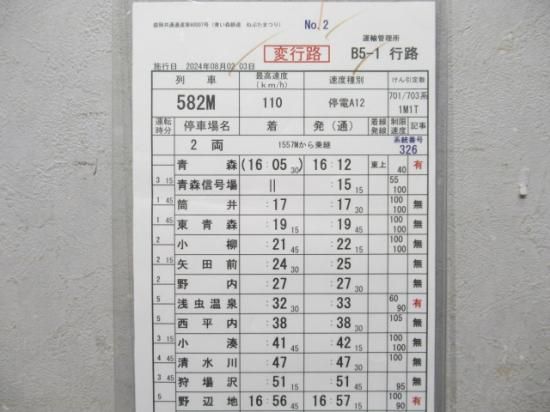 盛総共通達運第40007号(青い森鉄道 ねぶたまつり)
No.2
変行路
運輸管理所
B5-1 行路
施行日 2024年08月02,03日
列車 最高速度(km/h) 速度種別 けん引定数
582M 110 停電A12 701/703系 1M1T
運転時分 停車場名 着 発(通) 着線発線 制限速度 記事
2 両 1557Mから乗継 系統番号 326
青森 (16:05 30) 16:12 東上 40 有
3 15 青森信号場 || :15 15 55 100
1 45 筒井 :17 :17 30 100 100 無
1 45 東青森 :19 :19 15 100 100 無
2 小柳 :21 45 :22 15 100 100 無
2 15 矢田前 :24 30 :25 無
2 野内 :27 :27 30 無
5 浅虫温泉 :32 30 :33 60 90 有
5 西平内 :38 :38 30 105 無
3 15 小湊 :41 45 :42 45 100 無
4 45 清水川 :47 :47 30 100 無
4 狩場沢 :51 :51 45 95 無
5 野辺地 16:56 45 16:57 100 90 有